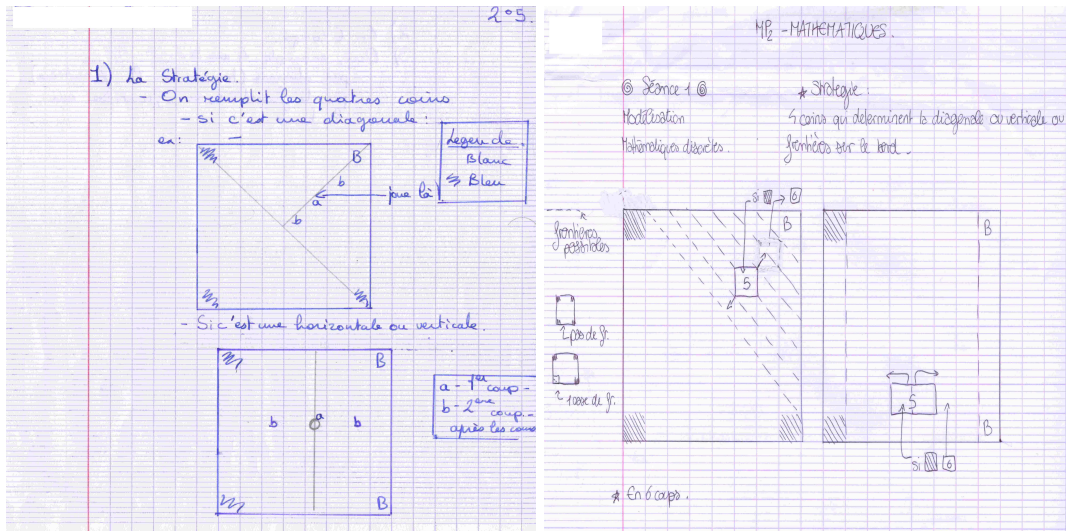 2°5.
1) La Stratégie.
- On remplit les quatres coins
- si c'est une diagonale :
ex :
Legende.
Blanc
Bleu
B
b
a
joue là
b
- Si c'est une horizontale ou verticale.
B
b
a
b
B
a - 1er coup -
b - 2ème coup. -
après les coins
MP2 - MATHEMATIQUES.
Séance 1
Modélisation
Mathématiques discrètes.
* Stratégie :
4 coins qui déterminent la diagonale ou verticale ou
frontières sur le bord.
frontières
possibles
si 6
B
5
B
5
B
si 6
2 pas de fr.
* En 6 coups.